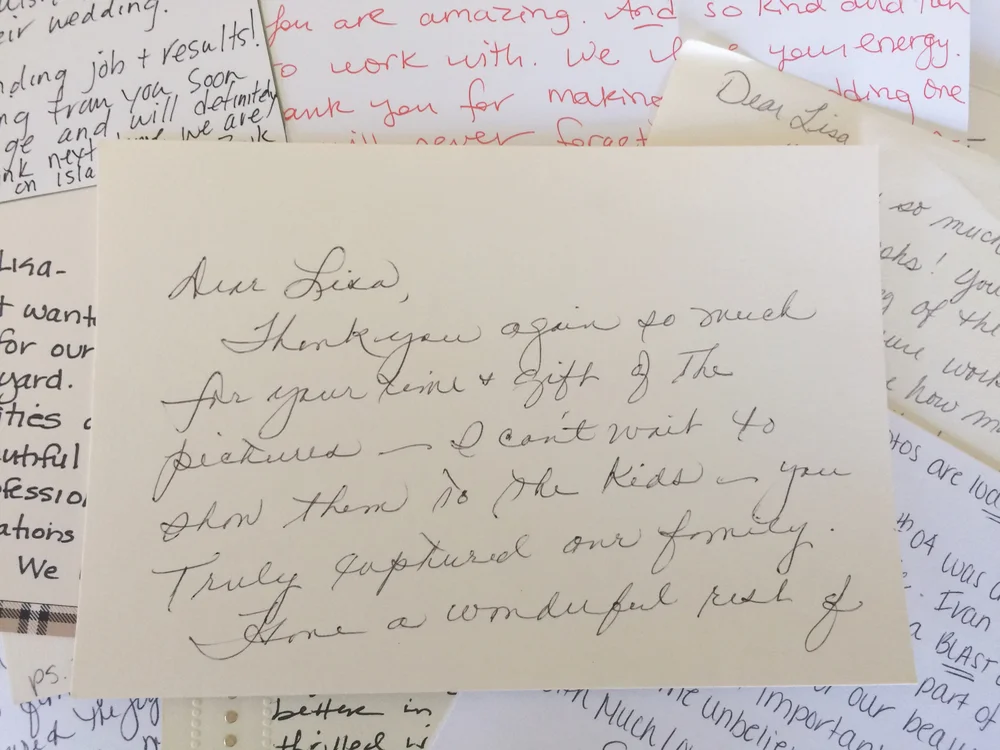 eir wedding.
nding job + results!
ng from you soon
ge and will definitely
we are)
nk next
on Isla
You are amazing. And so kind and fun
to work with. We your energy.
ank you for making dding one
will never forget
Dear Lisa
so much
You
g of the
work
how m
Lisa-
t want
for our
yard.
ities
utiful
ofession
ations
We
Dear Lisa,
Thank you again so much
for your time + gift of the
pictures — I can't wait to
show them to the kids — you
Truly captured our family.
Have a wonderful rest of
tos are loa
04 was a
Ivan
a BLAST
part of
our beau
importan
me unbelie
With Much Lo
ps.
better in
thrilled wi